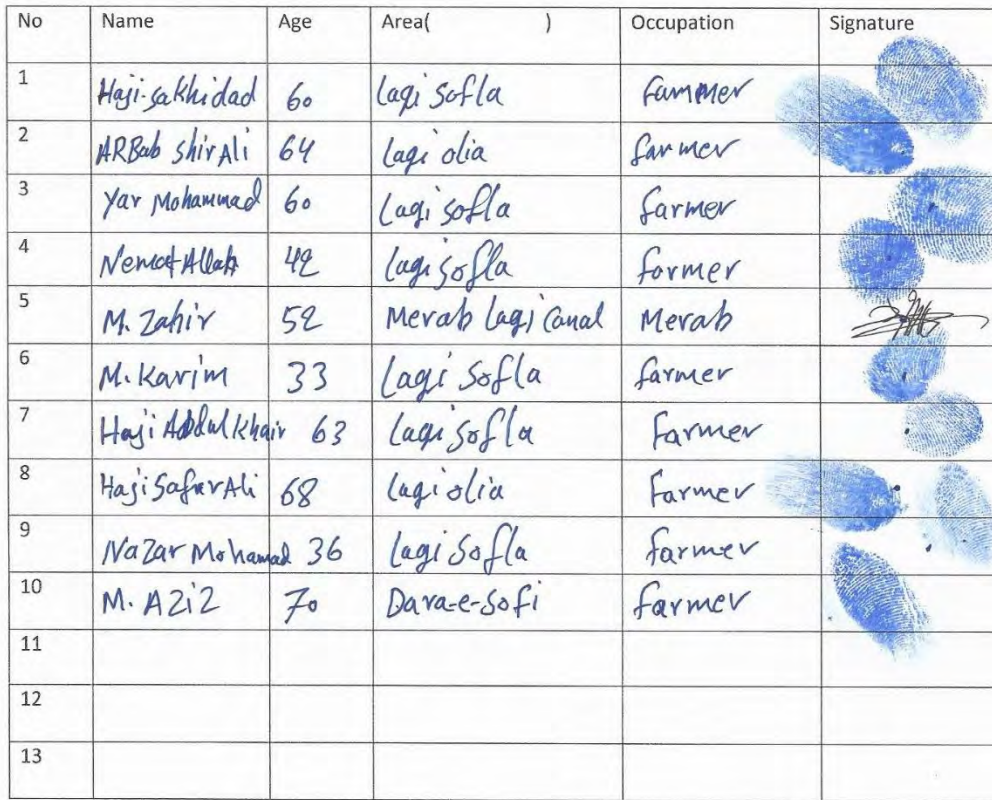 No Name Age Area( ) Occupation Signature
1 Haji-sakhidad 60 Lagi sofla fammer
2 ARBab shir Ali 64 Lagi olia farmer
3 Yar Mohammad 60 Lagi sofla farmer
4 Nemat Allah 42 Lagi sofla farmer
5 M. Zahir 52 Merab Lagi Canal Merab
6 M. Karim 33 Lagi Sofla farmer
7 Haji Abdul Khair 63 Lagi sofla Farmer
8 Haji Safar Ali 68 Lagi olia Farmer
9 Nazar Mohamad 36 Lagi Sofla farmer
10 M. AZiZ 70 Dara-e-Sofi farmer
11
12
13